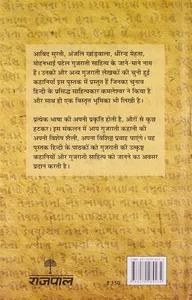 आबिद सुरती, अंजलि खांडवाला, धीरेन्द्र मेहता,
मोहनभाई पटेल गुजराती साहित्य के जाने-माने नाम
हैं। उनकी और अन्य गुजराती लेखकों की चुनी हुई
कहानियाँ इस पुस्तक में प्रस्तुत हैं जिनका चुनाव
हिन्दी के प्रसिद्ध साहित्यकार कमलेश्वर ने किया है
और साथ ही एक विस्तृत भूमिका भी लिखी है।
प्रत्येक भाषा की अपनी प्रकृति होती है, औरों से कुछ
हटकर। इस संकलन में आप गुजराती कहानी की
अपनी विशेष शैली, अपना विशिष्ट प्रवाह पाएंगे। यह
पुस्तक हिन्दी के पाठकों को गुजराती की उत्कृष्ट
कहानियों और गुजराती साहित्य को जानने का अवसर
प्रदान करती है।
राजपाल
₹150